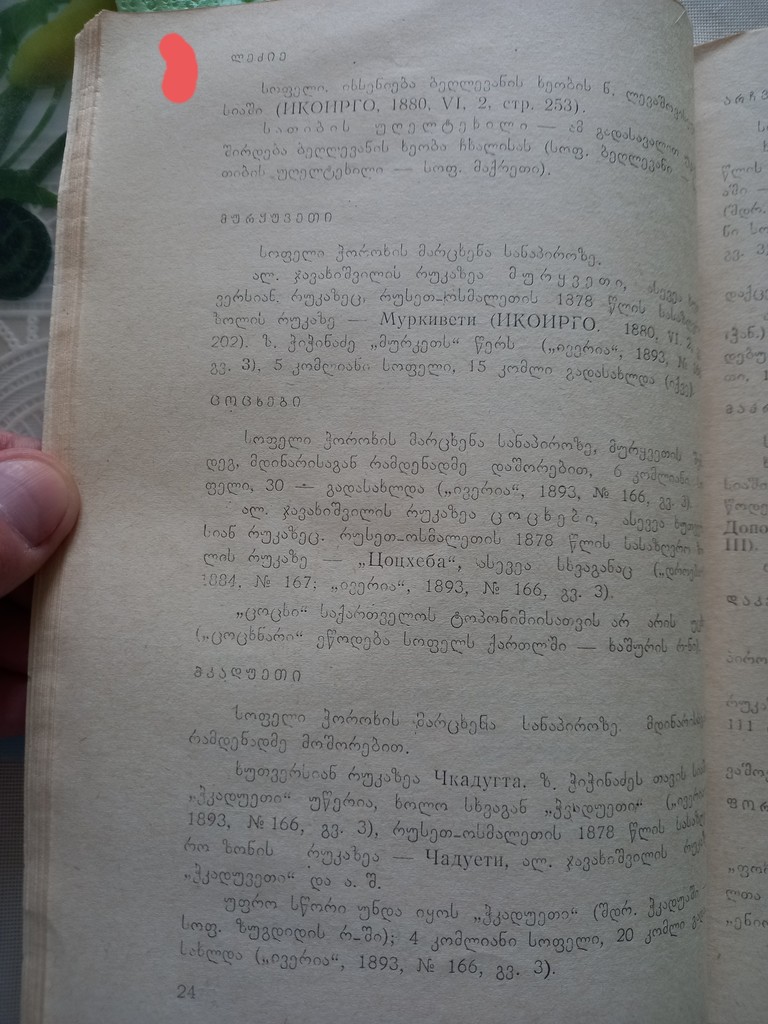 ლეძიე
სოფელი. იხსენიება ბეღლევანის ხეობის ნ. ლევაშოვის
სიაში (ИКОИРГО, 1880, VI, 2, стр. 253).
სათიბის უღელტეხილი — ამ გადასავალით
შირდება ბეღლევანის ხეობა ჩხალისას (სოფ. ბეღლევანი
თიბის უღელტეხილი — სოფ. მაქრეთი).
მურყუვეთი
სოფელი ჭოროხის მარცხენა სანაპიროზე.
ალ. ჯავახიშვილის რუკაზეა მურყვეთი, ასევეა
ვერსიან. რუკაზეც. რუსეთ-ოსმალეთის 1878 წლის
ზოლის რუკაზე — Муркивети (ИКОИРГО. 1880, VI. 2,
202). ზ. ჭიჭინაძე „მურკეთს“ წერს („ივერია“, 1893, №
გვ. 3), 5 კომლიანი სოფელი, 15 კომლი გადასახლდა (იქვე).
ცოცხები
სოფელი ჭოროხის მარცხენა სანაპიროზე, მურყვეთის
დეგ, მდინარისაგან რამდენადმე დაშორებით, 6 კომლიანი
ფელი, 30 — გადასახლდა („ივერია“, 1893, № 166, გვ. 3).
ალ. ჯავახიშვილის რუკაზეა ცოცხები, ასევეა
სიან რუკაზეც. რუსეთ-ოსმალეთის 1878 წლის სასაზღვრო
ლის რუკაზე — „Цоцхеба“, ასევეა სხვაგანაც
1884, № 167; „ივერია“, 1893, № 166, გვ. 3).
„ცოცხი“ საქართველოს ტოპონიმიისათვის არ არის
(„ცოცხნარი“ ეწოდება სოფელს ქართლში — ხაშურის რ-ნი).
ჭკადუეთი
სოფელი ჭოროხის მარცხენა სანაპიროზე. მდინარისაგან
რამდენადმე მოშორებით.
ხუთვერსიან რუკაზეა Чкадугта. ზ. ჭიჭინაძეს თავის
„ჭკადუეთი“ უწერია, ხოლო სხვაგან
1893, № 166, გვ. 3), რუსეთ-ოსმალეთის 1878 წლის
რო ზონის რუკაზეა — Чадуети, ალ. ჯავახიშვილის
„ჭკადუვეთი“ და ა. შ.
უფრო სწორი უნდა იყოს „ჭკადუეთი“ (შდრ. ჭკადუაში
სოფ. ზუგდიდის რ-ში); 4 კომლიანი სოფელი, 20 კომლი
სახლდა („ივერია“, 1893, № 166, გვ. 3).
24